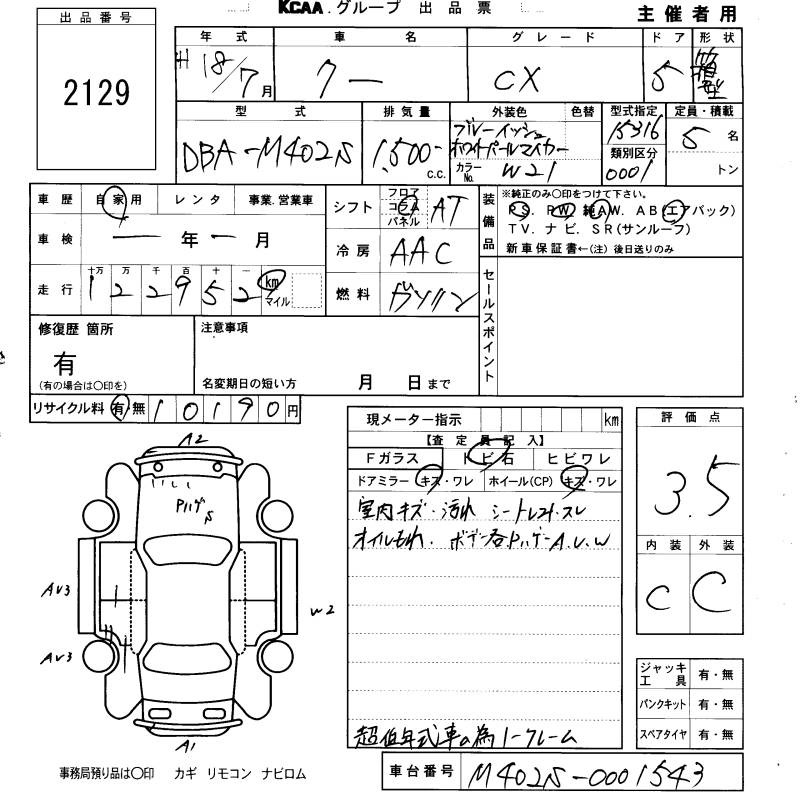 KCAA グループ 出品票
主催者用
出品番号
2129
年式 車名 グレード ドア 形状
H 18/7月 クー CX 5 箱型
型式 排気量 外装色 色替 型式指定 定員・積載
DBA-M402S 1,500- c.c. ブルーイッシュ ホワイトパールマイカー 15316 5名
カラーNo. W21 類別区分 0001 トン
車歴 自家用 レンタ 事業.営業車
車検 ー年ー月
走行 十万 万 千 百 十 一
122952 km マイル
シフト フロア コラム パネル AT
冷房 AAC
燃料 ガソリン
装備品 ※純正のみ〇印をつけて下さい。
PS. PW. 純AW. AB(エアバック)
TV. ナビ. SR(サンルーフ)
新車保証書←(注) 後日送りのみ
セールスポイント
修復歴 箇所
有
(有の場合は〇印を)
注意事項
名変期日の短い方 月 日まで
リサイクル料 有 無 10190円
現メーター指示 km
【査定員記入】
Fガラス トビ石 ヒビワレ
ドアミラー キズ・ワレ ホイール(CP) キズ・ワレ
室内キズ・汚れ シートコゲ・スレ
オイルもれ. ボデー各Pハゲ A.U.W
超低年式車の為ノークレーム
評価点
3.5
内装 外装
C C
ジャッキ工具 有・無
パンクキット 有・無
スペアタイヤ 有・無
A2
Pハゲ
S
AV3
W2
AV3
A1
事務局預り品は〇印 カギ リモコン ナビロム
車台番号 M402S-0001543